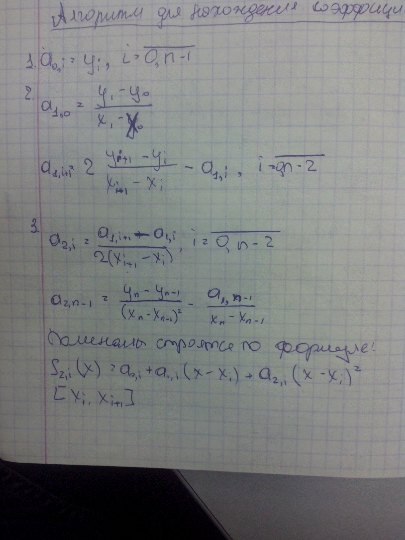 Алгоритм для нахождения коэффици
1. a₀,ᵢ = yᵢ, i = 0, n-1
2. a₁,₀ = (y₁ - y₀) / (x₁ - x₀)
a₁,ᵢ₊₁ = 2 (yᵢ₊₁ - yᵢ) / (xᵢ₊₁ - xᵢ) - a₁,ᵢ, i = 0, n-2
3. a₂,ᵢ = (a₁,ᵢ₊₁ - a₁,ᵢ) / 2(xᵢ₊₁ - xᵢ), i = 0, n-2
a₂,ₙ₋₁ = (yₙ - yₙ₋₁) / (xₙ - xₙ₋₁)² - a₁,ₙ₋₁ / (xₙ - xₙ₋₁)
Полиномы строятся по формуле:
S₂,ᵢ(x) = a₀,ᵢ + a₁,ᵢ(x - xᵢ) + a₂,ᵢ(x - xᵢ)²
[xᵢ, xᵢ₊₁]